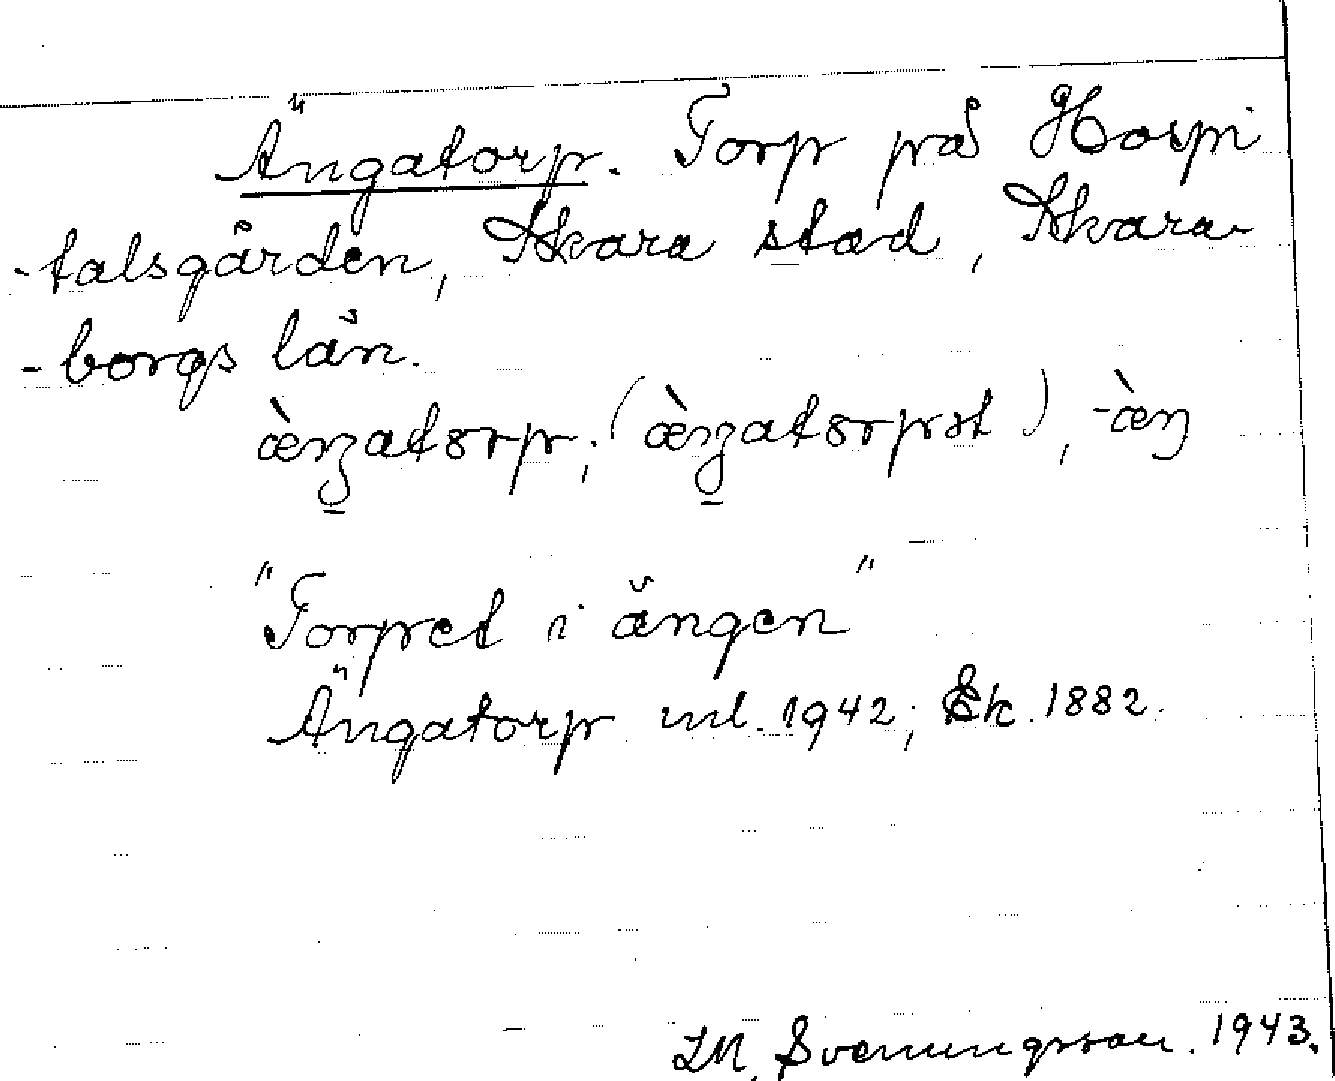 Ängatorp. Torp på Hospi
-talsgården, Skara stad, Skara-
-borgs län.
æ̀ŋatɔrp; (æ̀ŋatɔrpst), -æ̀ŋ
"Torpet i ängen"
Ängatorp ml. 1942; Ek. 1882.
Svenungsson. 1943.